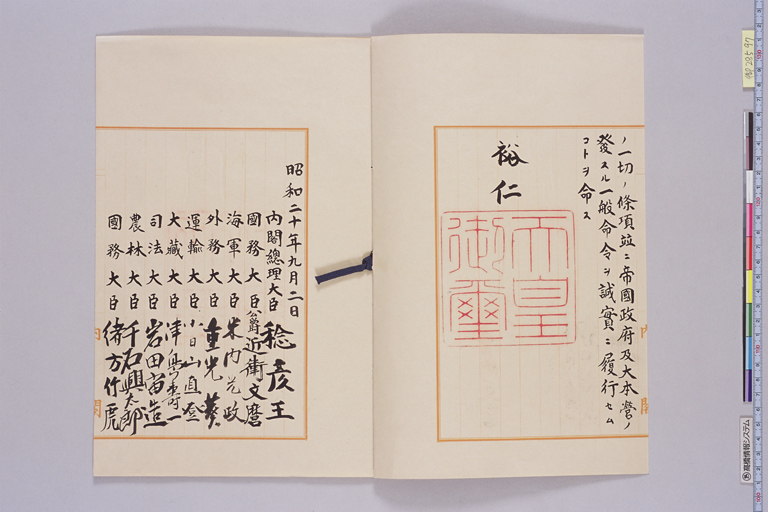 ノ一切ノ條項竝ニ帝國政府及大本營ノ
發スル一般命令ヲ誠實ニ履行セム
コトヲ命ス
裕仁
天皇
御璽
昭和二十年九月二日
内閣總理大臣 稔彦王
國務大臣 公爵 近衛文麿
海軍大臣 米内光政
外務大臣 重光葵
運輸大臣 小日山直登
大藏大臣 津島壽一
司法大臣 岩田宙造
農林大臣 千石興太郎
國務大臣 緒方竹虎
内
閣
内
閣
高橋情報システム